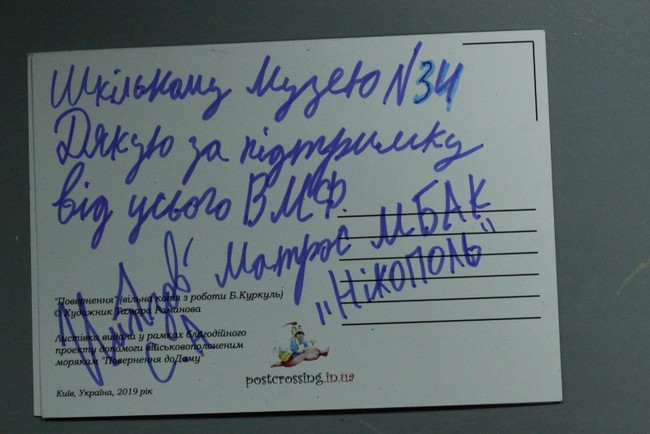 Шкільному музею N34
Дякую за підтримку
від усього ВМФ.
Матрос МБАК
"Нікополь"
"Повернення" (вільна копія з роботи Б.Куркуль)
© Художник Тамара Романова
Листівка видана у рамках благодійного
проекту допомоги військовополоненим
морякам "Повернення доДому"
Київ, Україна, 2019 рік
postcrossing.in.ua